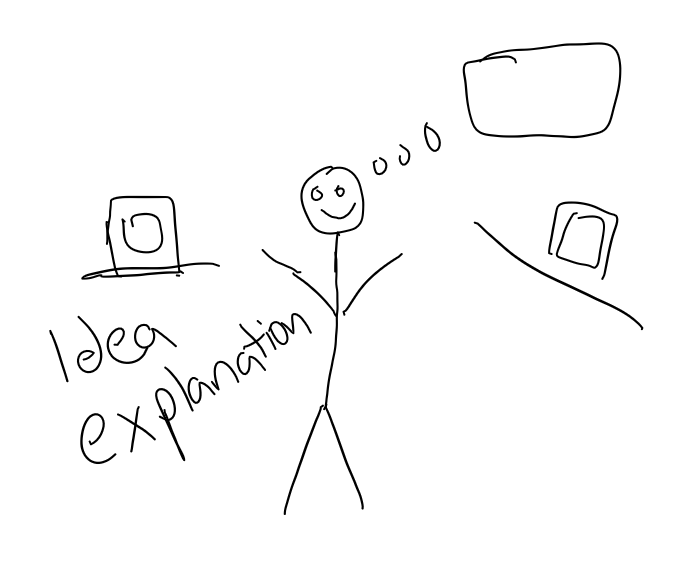 Idea
explanation